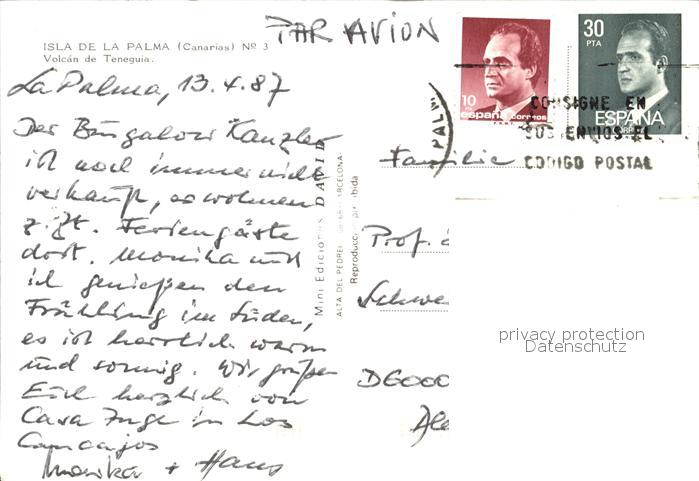 ISLA DE LA PALMA (Canarias) Nº 3
Volcán de Teneguia.
PAR AVION
La Palma, 13.4.87
Der Bungalow Kanzler
ist noch immer nicht
verkauft, es wohnen
z. Zt. Feriengäste
dort. Monika und
ich genießen den
Frühling im Süden,
es ist herrlich warm
und sonnig. Wir grüßen
Euch herzlich von
Casa Inge in Los
Cancajos
Monika + Hans
Mini Ediciones DAVID
ALTA DEL PEDREL BARCELONA
Reproducción prohibida
10
PTA
españa correos
30
PTA
ESPAÑA
CORREOS
PALM
CONSIGNE EN
SUS ENVIOS EL
CODIGO POSTAL
Familie
Prof.
Schwe
D6000
privacy protection
Datenschutz